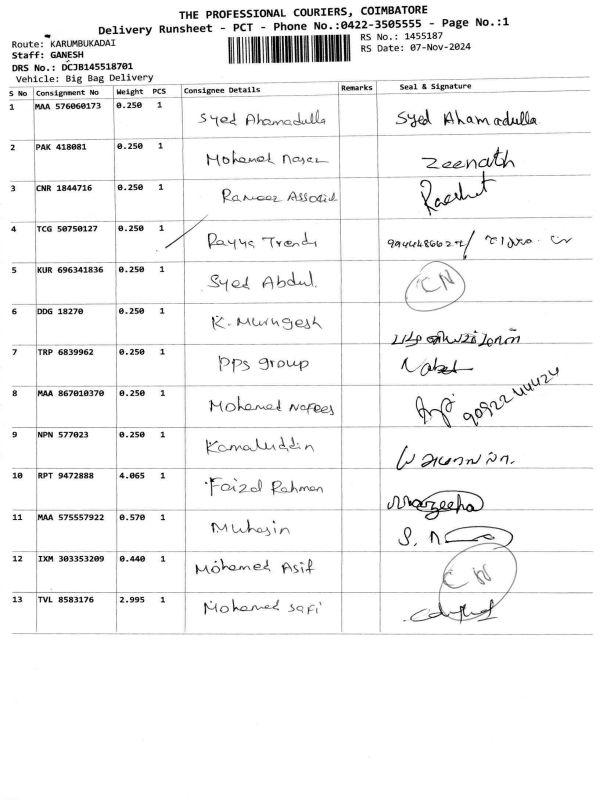 THE PROFESSIONAL COURIERS, COIMBATORE
Delivery Runsheet - PCT - Phone No.:0422-3505555 - Page No.:1
Route: KARUMBUKADAI
RS No.: 1455187
Staff: GANESH
RS Date: 07-Nov-2024
DRS No.: DCJB145518701
Vehicle: Big Bag Delivery
S No Consignment No Weight PCS Consignee Details Remarks Seal & Signature
1 MAA 576060173 0.250 1 Syed Ahamadulla Syed Ahamadulla
2 PAK 418081 0.250 1 Mohamed naser Zeenath
3 CNR 1844716 0.250 1 Rameez Associd
4 TCG 50750127 0.250 1 Rayya Trends
5 KUR 696341836 0.250 1 Syed Abdul. CN
6 DDG 18270 0.250 1 K. Murugesh
7 TRP 6839962 0.250 1 PPS group
8 MAA 867010370 0.250 1 Mohamed Nafees 9092244424
9 NPN 577023 0.250 1 Kamaluddin
10 RPT 9472888 4.065 1 Faizal Rahman
11 MAA 575557922 0.570 1 Muhasin
12 IXM 303353209 0.440 1 Mohamed Asif CN
13 TVL 8583176 2.995 1 Mohamed safi